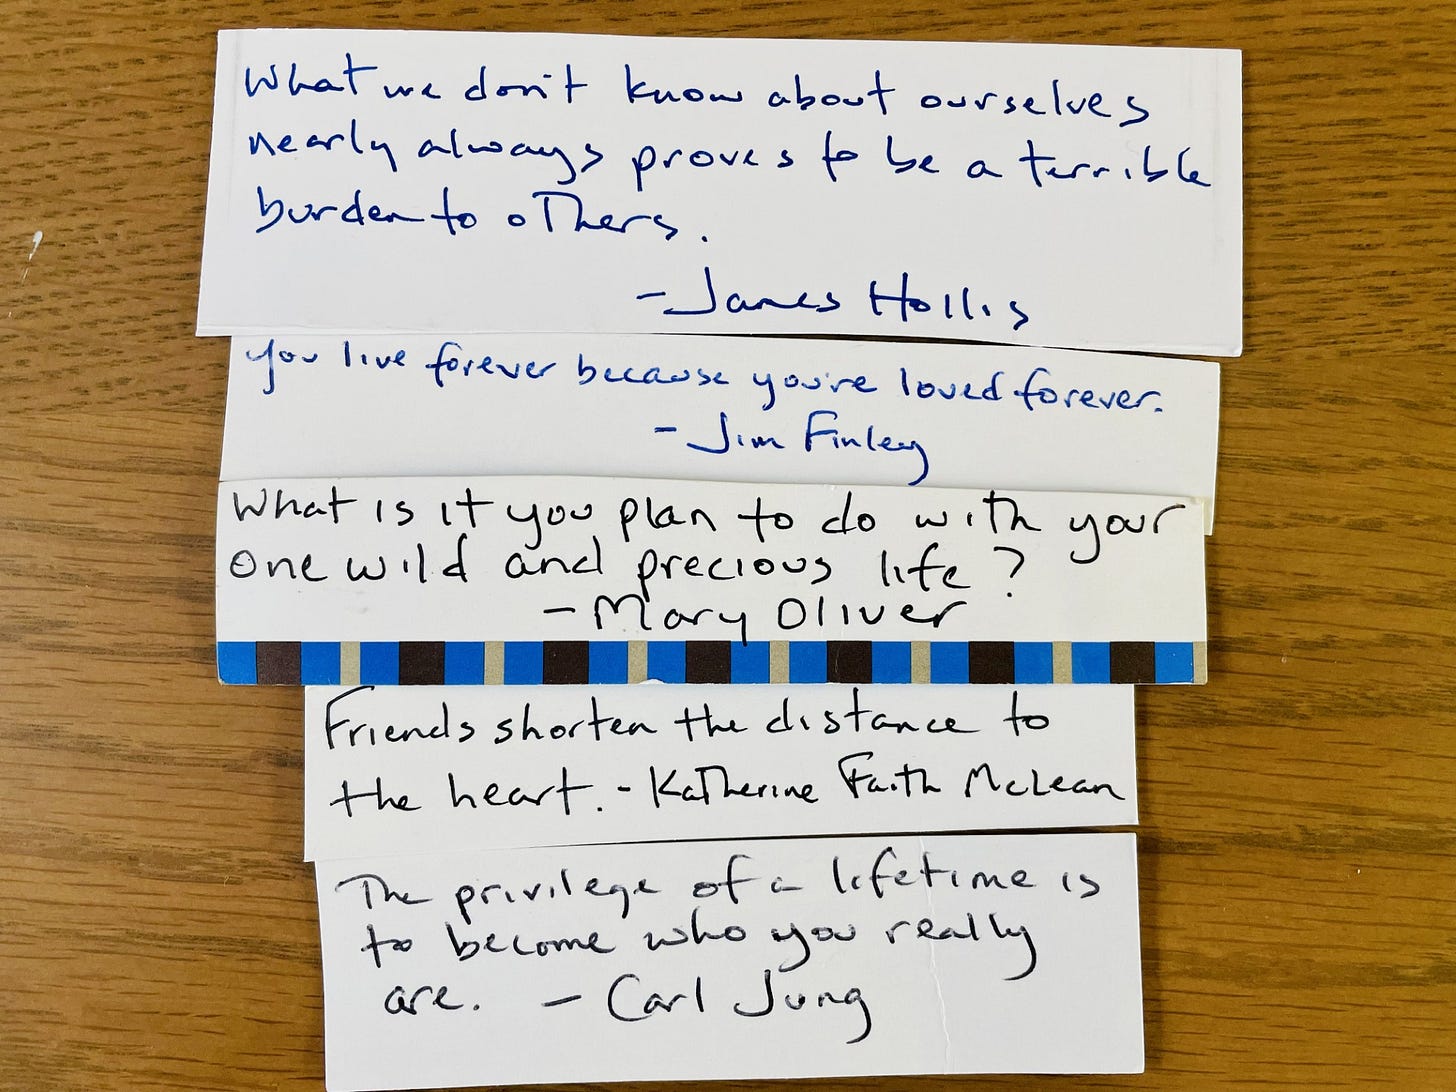 What we don't know about ourselves
nearly always proves to be a terrible
burden to others.
- James Hollis
you live forever because you're loved forever.
- Jim Finley
What is it you plan to do with your
one wild and precious life?
- Mary Oliver
Friends shorten the distance to
the heart. - Katherine Faith McLean
The privilege of a lifetime is
to become who you really
are. - Carl Jung